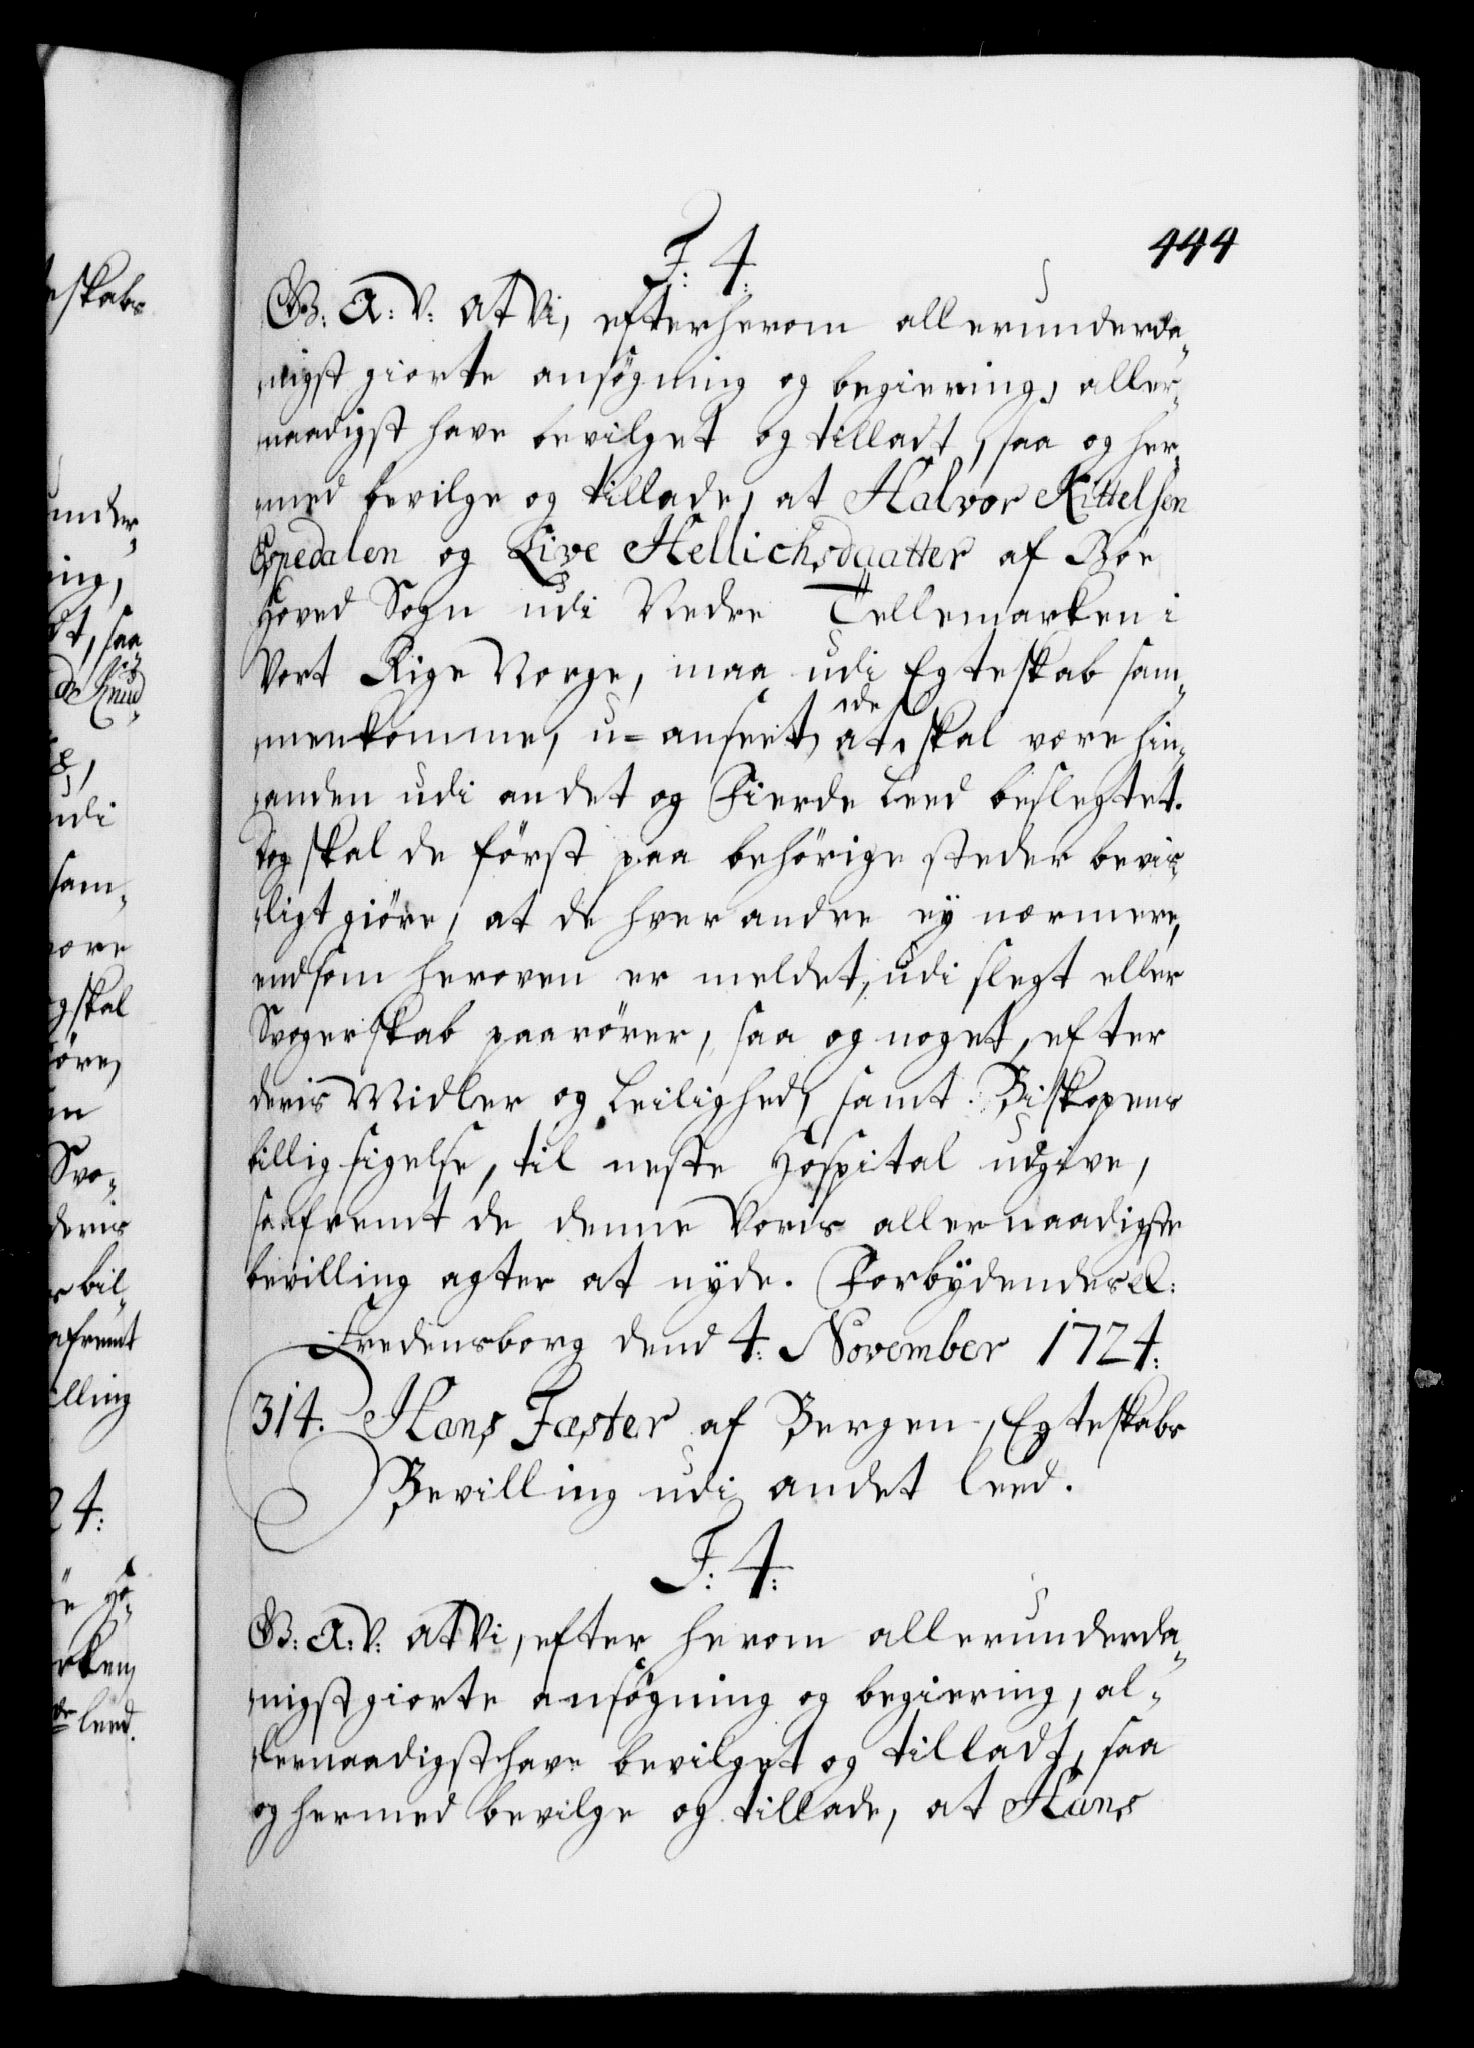 444
F: 4:
G: A: V: at Vi, efter herom allerunderda„
nigst giorte ansøgning og begiering, aller„
naadigst have bevilget og tilladt, saa og her„
med bevilge og tillade, at Halvor Kittelsen
Espedalen og Live Hellichsdaatter af Bøe
Hoved Sogn udi Nedre Tellemarken i
Vort Rige Norge, maa udi Egteskab sam„
menkomme, u-anseet, at de skal være hin„
anden udi andet og Fierde Leed beslegtet.
Dog skal de først paa behørige steder bevis„
ligt giøre, at de hver andre ey nærmere,
end som heroven er meldet, udi slegt eller
Svogerskab paarører, saa og noget, efter
deris Midler og Leilighed, samt Biskopens
billig sigelse, til neste Hospital udgive,
saafremt de denne Voris allernaadigste
bevilling agter at nyde. Forbydendes el:
Fredensborg dend 4: November 1724:
314. Hans Fæster af Bergen, Egteskabs
Bevilling udi andet leed.
F: 4:
G: A: V: at Vi, efter herom allerunderda„
nigst giorte ansøgning og begiering, al„
lernaadigst have bevilget og tilladt, saa
og hermed bevilge og tillade, at Hans